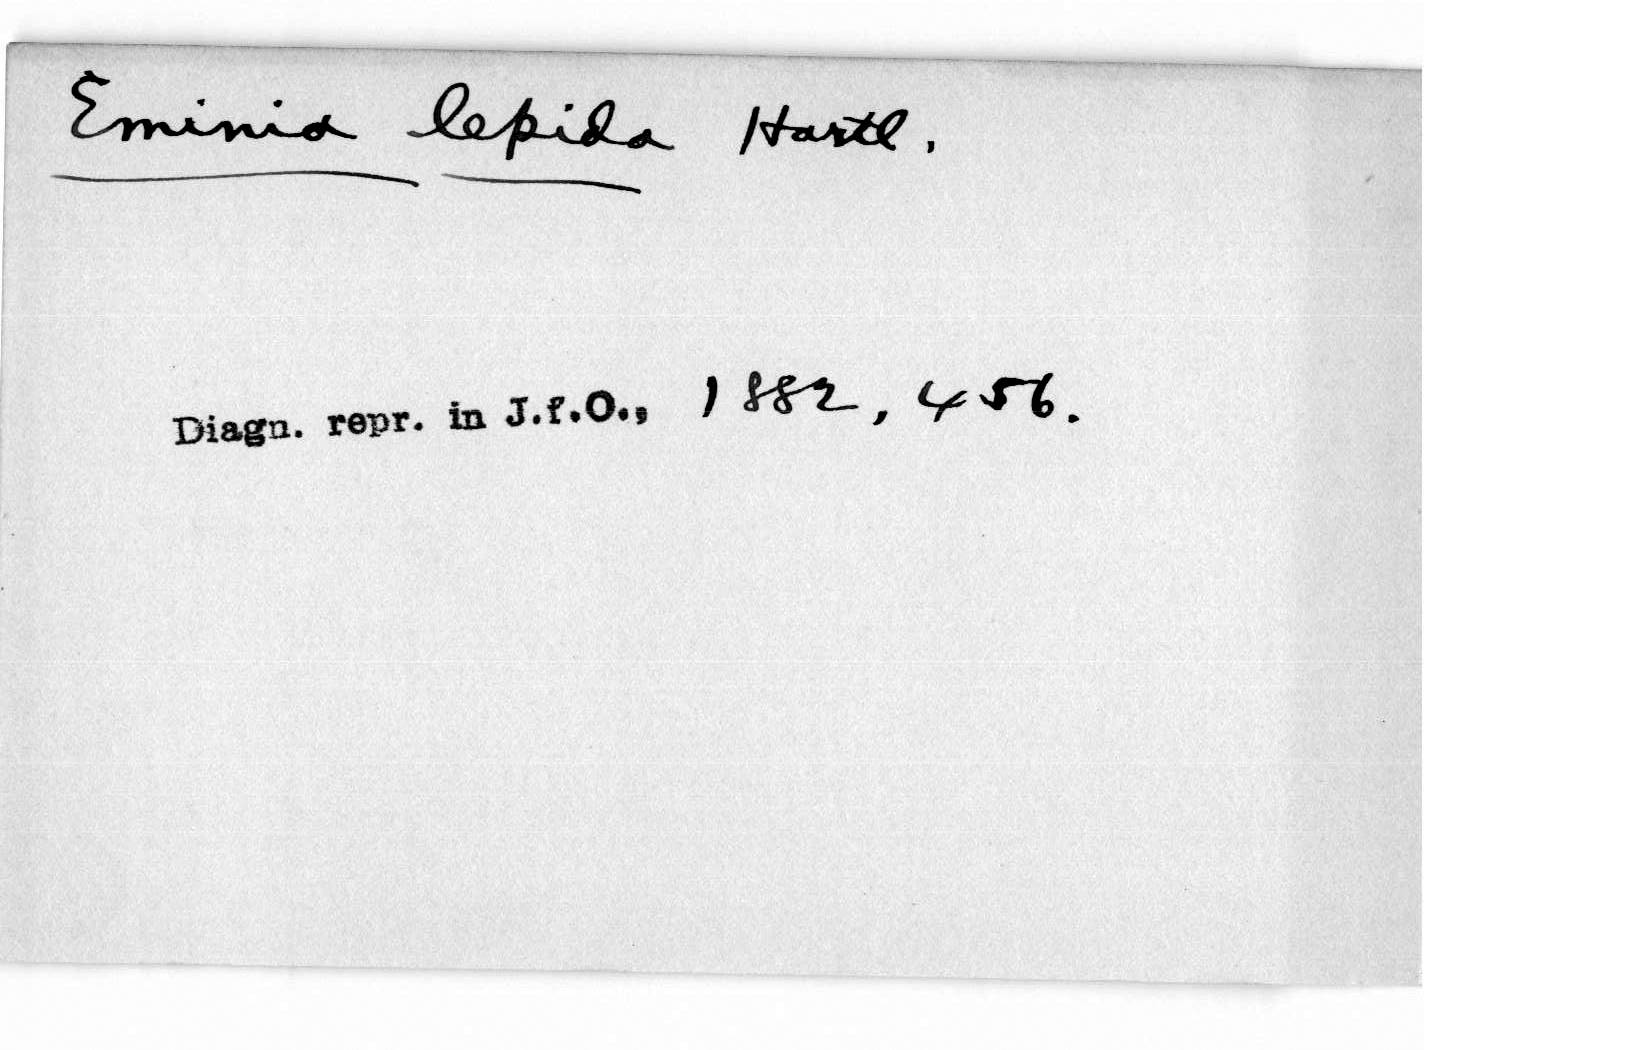 Eminia lepida Hartl.
Diagn. repr. in J.f.O., 1882, 456.